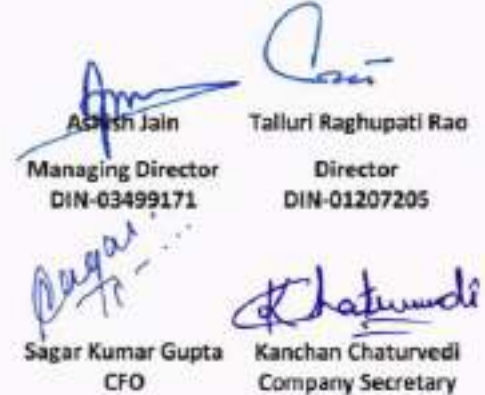 Ashish Jain
Managing Director
DIN-03499171
Talluri Raghupati Rao
Director
DIN-01207205
Sagar
Sagar Kumar Gupta
CFO
KChaturvedi
Kanchan Chaturvedi
Company Secretary